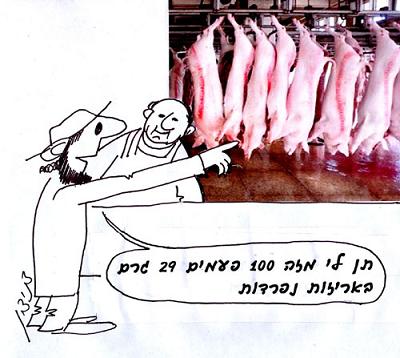 תן לי מזה 100 פעמים 29 גרם
באריזות נפרדות